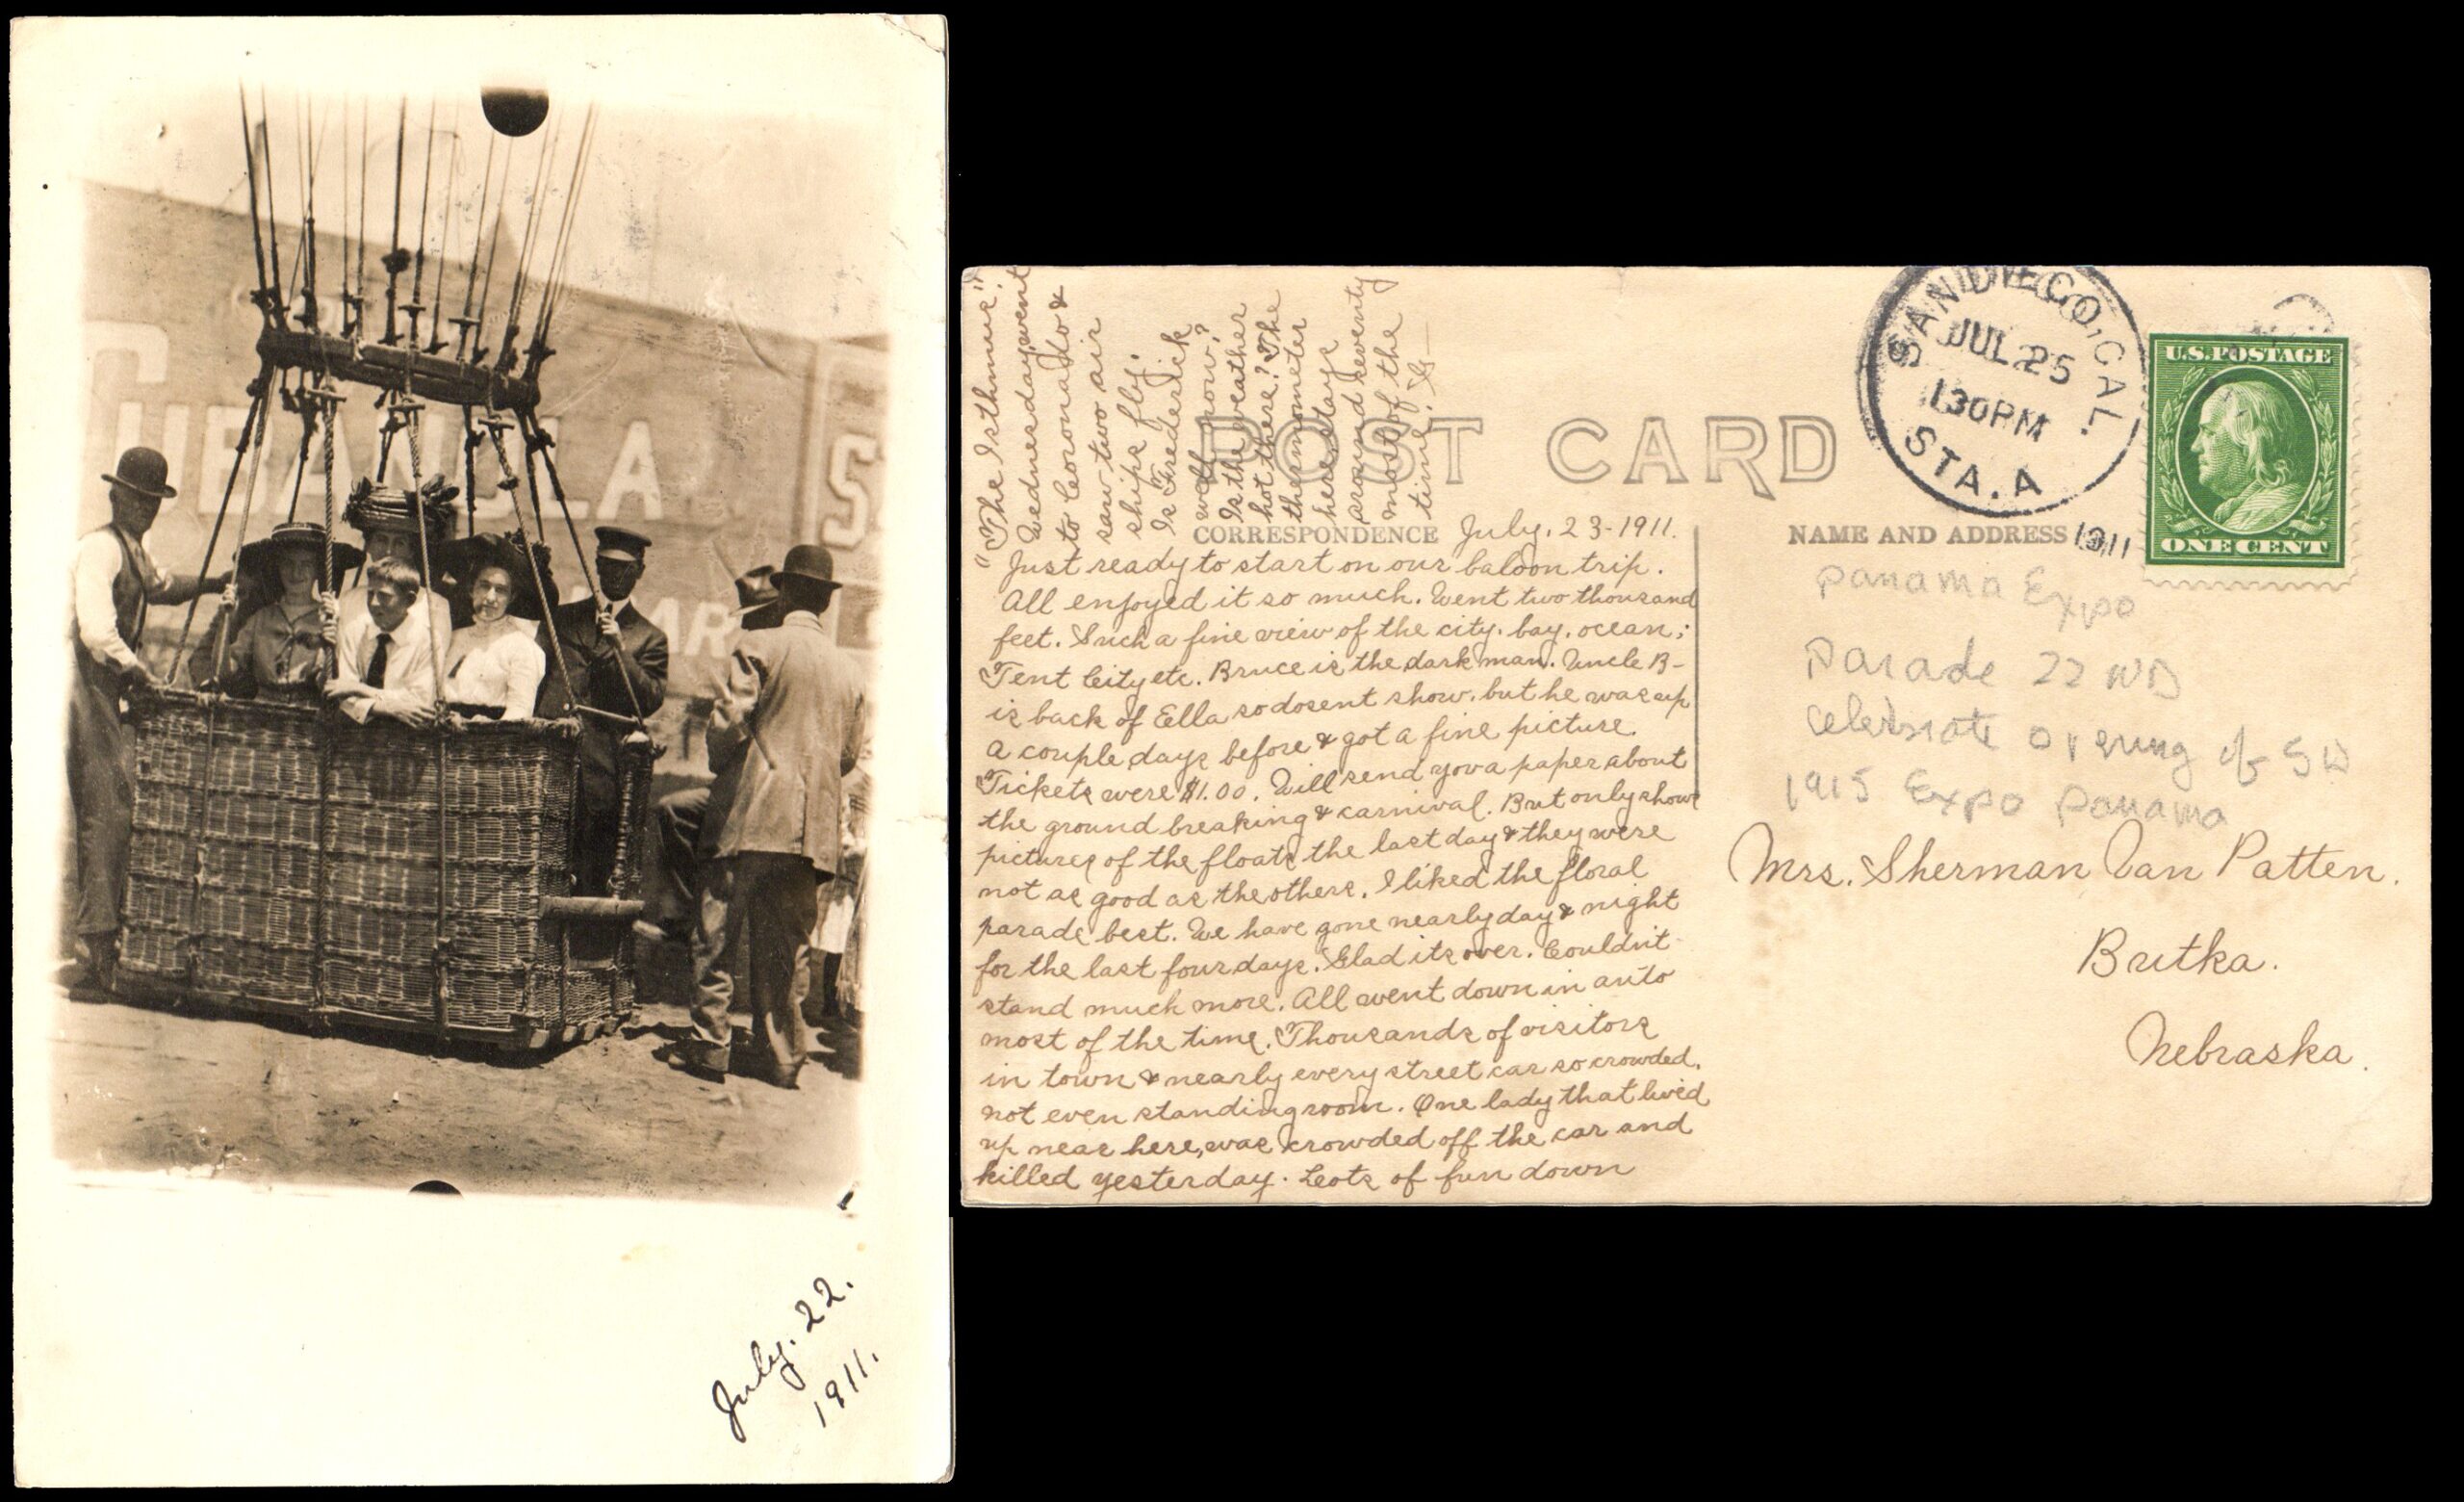 CUBANOLA
July. 22.
1911.
POST CARD
CORRESPONDENCE
NAME AND ADDRESS
SAN DIEGO, CAL.
JUL 25
130PM
STA. A
1911
U.S. POSTAGE
ONE CENT
July. 23-1911.
Just ready to start on our baloon trip.
All enjoyed it so much. Went two thousand
feet. Such a fine view of the city. bay. ocean;
Tent City etc. Bruce is the dark man. Uncle B-
is back of Ella so dosent show. but he was up
a couple days before & got a fine picture.
Tickets were $1.00. Will send you a paper about
the ground breaking & carnival. But only shows
pictures of the floats the last day & they were
not as good as the others. I liked the floral
parade best. We have gone nearly day & night
for the last four days. Glad its over. Couldn't
stand much more. All went down in auto
most of the time. Thousands of visitors
in town & nearly every street car so crowded.
not even standing room. One lady that lived
up near here, was crowded off the car and
killed yesterday. Lots of fun down
"The Isthmus".
Wednesday, went
to Coronado &
saw two air
ships fly.
Is Frederick
well now?
Is the weather
hot there? The
thermometer
here stays
around seventy
most of the
time. G-
Panama Expo
Parade 22 ND
celebrate opening of SD
1915 Expo Panama
Mrs. Sherman Van Patten.
Brutka.
Nebraska.